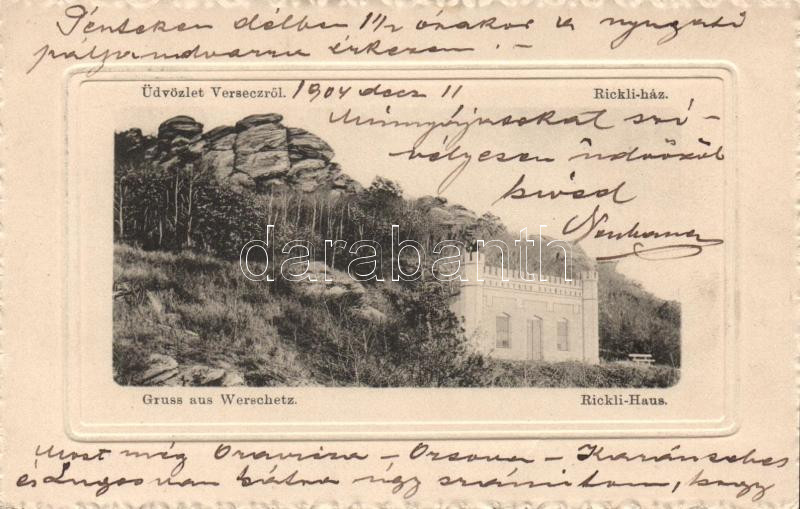 Pénteken délben 1/2 órakor a nyugati
pályaudvarra érkezem. –
Üdvözlet Verseczről. 1904 decz 11 Rickli-ház.
Mindnyájukat szí-
vélyesen üdvözöl
híved
darabanth.com
Gruss aus Werschetz. Rickli-Haus.
Most még Oravicza – Orsova – Karánsebes
és Lugos van hátra úgy számítom, hogy